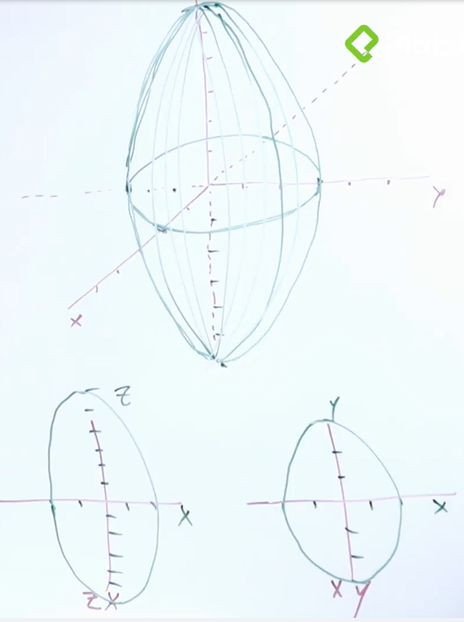 Y
X
Z
X
ZX
Y
X
XY